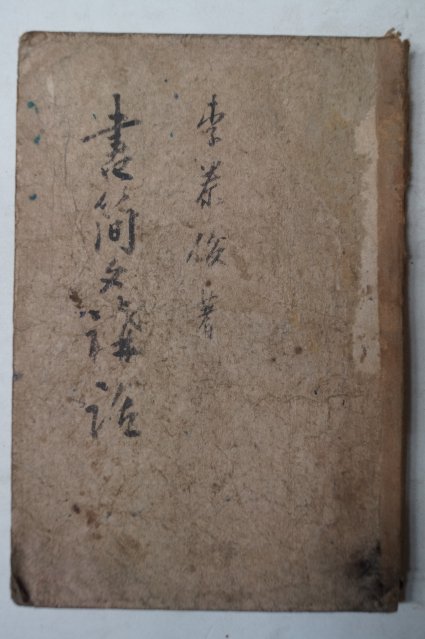 李泰俊著
書簡文講話